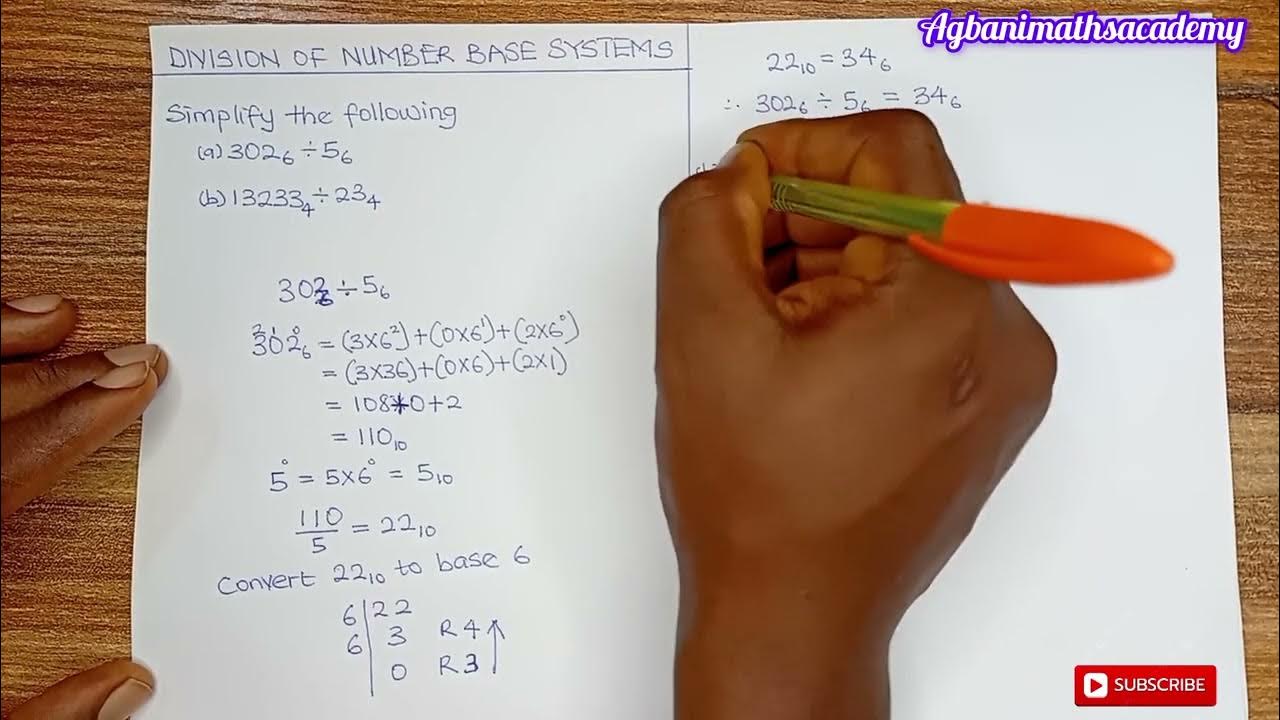 Agbanimathsacademy
DIVISION OF NUMBER BASE SYSTEMS
Simplify the following
(a) 302₆ ÷ 5₆
(b) 13233₄ ÷ 23₄
302₆ ÷ 5₆
3²0¹2⁰₆ = (3×6²)+(0×6¹)+(2×6⁰)
= (3×36)+(0×6)+(2×1)
= 108+0+2
= 110₁₀
5⁰ = 5×6⁰ = 5₁₀
110/5 = 22₁₀
Convert 22₁₀ to base 6
6|22
6|3 R4
|0 R3
22₁₀ = 34₆
∴ 302₆ ÷ 5₆ = 34₆
SUBSCRIBE